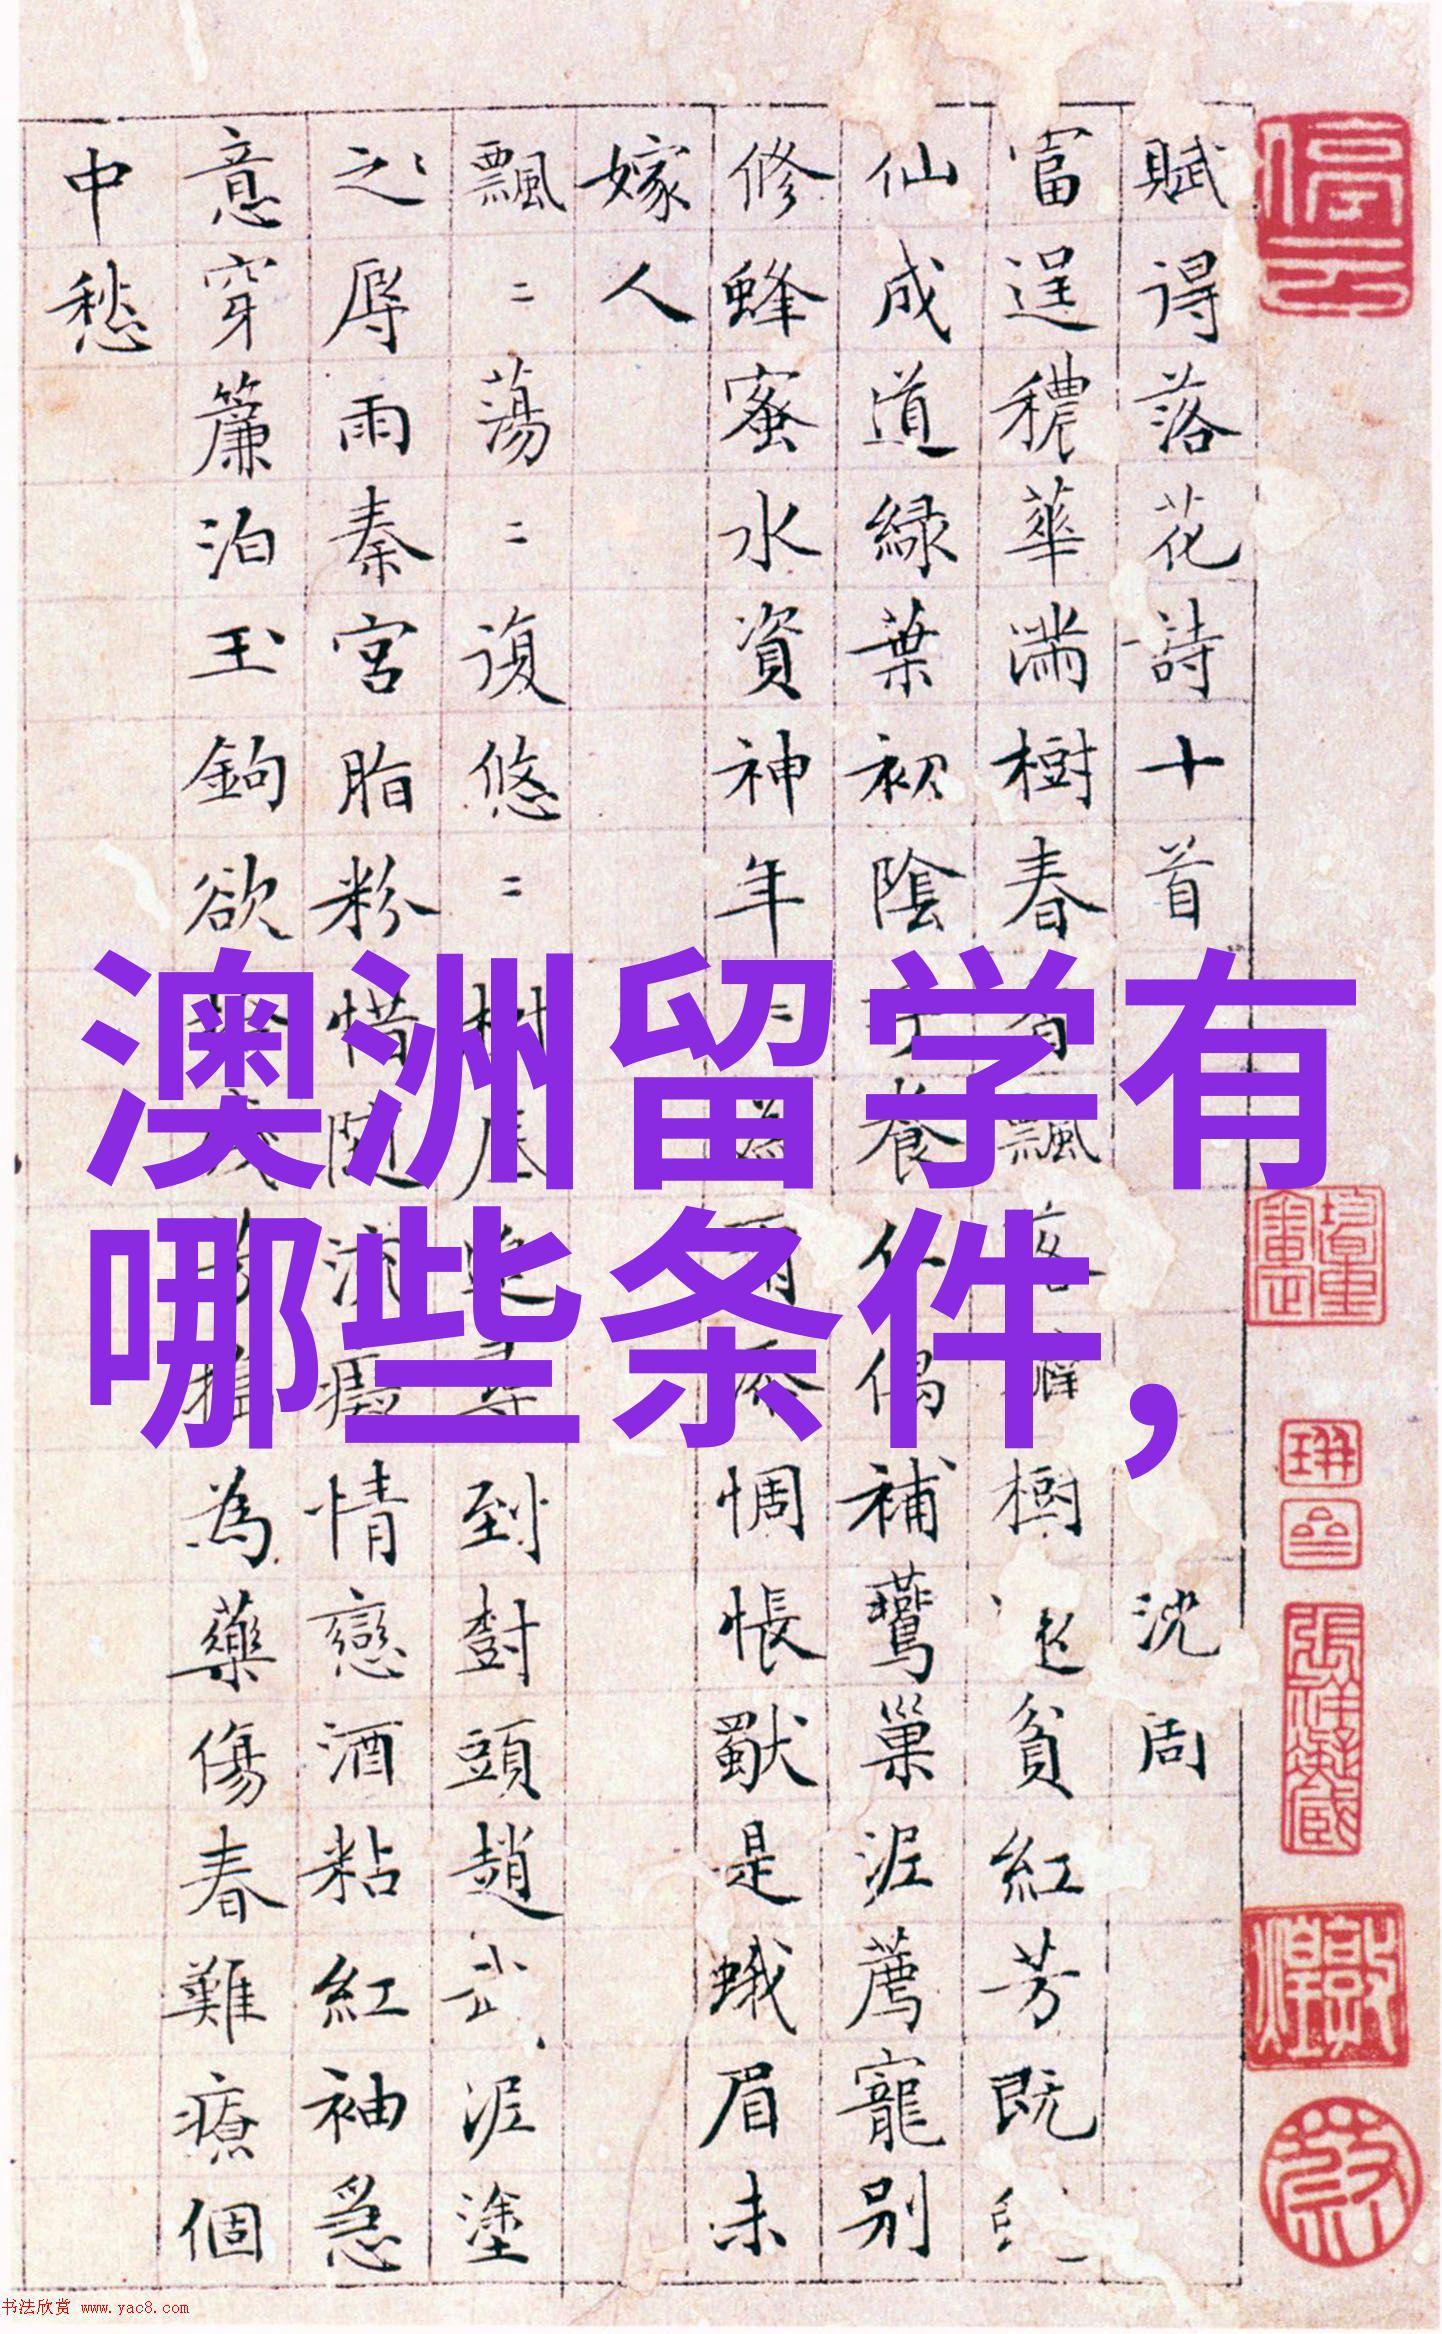 賦得落花詩十首 沈周
富逞穠華滿樹春飄樹貧紅芳既
仙成道綠葉初陰養仁偈補鸎巢泥薦寵別
修蜂蜜水資神年惆悵猒是蛾眉未
嫁人
飄〻蕩〻復悠〻樹到樹頭趙武泥塗
之辱雨秦宮脂粉惜隨流癡情戀酒粘紅袖急
意穿簾泊玉鉤欲為藥傷春難療個
中愁
澳洲留学有
哪些条件,
书法欣赏 www.yac8.com